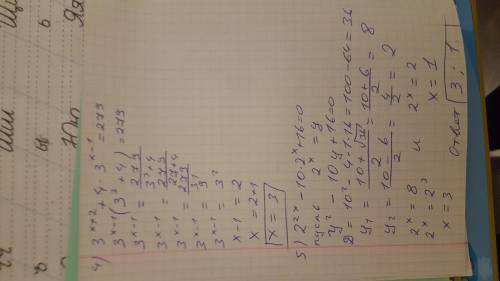 4) 3^(x+2) + 4 · 3^(x-1) = 279
3^(x-1)(3³ + 4) = 279
3^(x-1) = 279/(3³+4)
3^(x-1) = 279/(27+4)
3^(x-1) = 279/31
3^(x-1) = 3²
x-1 = 2
x = 2+1
x = 3
5) 2^(2x) - 10·2^x + 16 = 0
пусть 2^x = y
y² - 10y + 16 = 0
D = 10² - 4·1·16 = 100 - 64 = 36
y₁ = (10 + √36)/2 = (10+6)/2 = 8
y₂ = (10 - 6)/2 = 4/2 = 2
2^x = 8 и 2^x = 2
2^x = 2³ x = 1
x = 3
Ответ 3; 1.